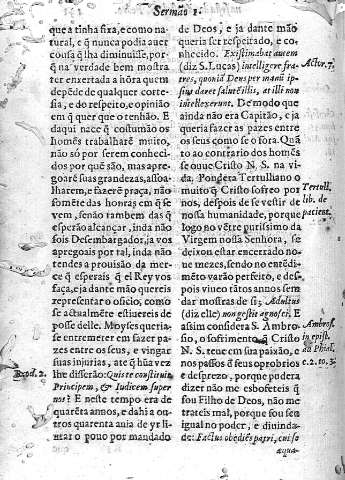 Sermão 1.
que a tinha fixa, e como na-
tural, e q̃ nunca podia auer
cousa q̃ lha diminuisse, por-
q̃ na verdade bem mostra
ter enxertada a hõra quem
depẽde de qualquer corte-
sia, e do respeito, e opinião
em q̃ quer que o tenhão. E
daqui nace q̃ costumão os
homẽs trabalharẽ muito,
não só por serem conheci-
dos por quẽ são, mas apre-
goarẽ suas grandezas, asso-
lharem, e fazerẽ praça, não
sómẽte das honras em q̃ se
vem, senão tambem das q̃
esperão alcançar, inda não
sois Desembargador, ja vos
apregoais por tal, inda não
tendes a prouisão da mer-
ce q̃ esperais q̃ el Rey vos
faça, e ja dante mão quereis
representar o oficio, como
se actualmẽte estiuereis de
posse delle. Moyses queria-
se entremeter em fazer pa-
zes entre os seus, e vingar
suas injurias, até q̃ hũa vez
lhe disserão: Quis te constituit
Principem, & Iudicem super
nos? E neste tempo era de
quarẽta annos, e dahi a ou
tros quarenta auia de yr li-
urar o pouo por mandado
Exod. 2.
de Deos, e ja dante mão
queria ser respeitado, e co-
nhecido. Existimabat autem
(diz S. Lucas) intelligere fra-
tres, quoniã Deus per manũ ip-
sius daret salutẽ illis, at illi non
intellexerunt. De modo que
ainda não era Capitão, e ja
queria fazer as pazes entre
os seus como se o fora. Quã
to ao contrario dos homẽs
se ouue Christo N. S. na vi-
da. Pondera Tertulliano o
muito q̃ Cristo sofreo por
nos, despois de se vestir de
nossa humanidade, porque
logo no vẽtre purissimo da
Virgem nossa Senhora, se
deixou estar encerrado no-
ue mezes, sendo no entẽdi-
mẽto varão perfeito, e des-
pois viueo tãtos annos sem
dar mostras de si; Adultus
(diz elle) non gestit agnosci. E
assim considera S. Ambro-
sio, o sofrimento q̃ Cristo
N. S. teue em sua paixão, e
nos passos q̃ seus oprobrios
e desprezo, porque podera
dizer não me esbofeteis q̃
sou Filho de Deos, não me
trateis mal, porque sou seu
igual no poder, e diuinda-
de: Factus obediẽs patri, cui so
aqua-
Actor. 7.
Tertull.
lib. de
patient.
Ambros.
in epist.
ad Phial.
c. 2. to. 3.